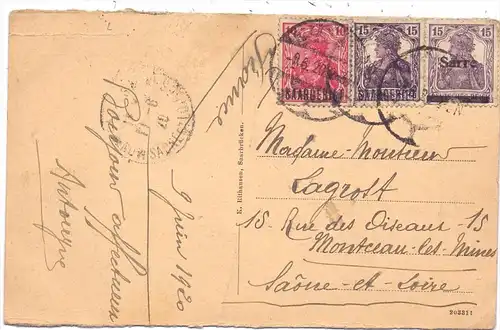 9 Juin 1920
Bonjour affectueux
Antoinette
France
10
SAARGEBIET
15
15
SAARGEBIET
15
15
Sarre
Madame-Monsieur
Lagrost
15- Rue des Oiseaux-15
Montceau-les-Mines
Saône-et-Loire
K. Rithausen, Saarbrücken.
202311